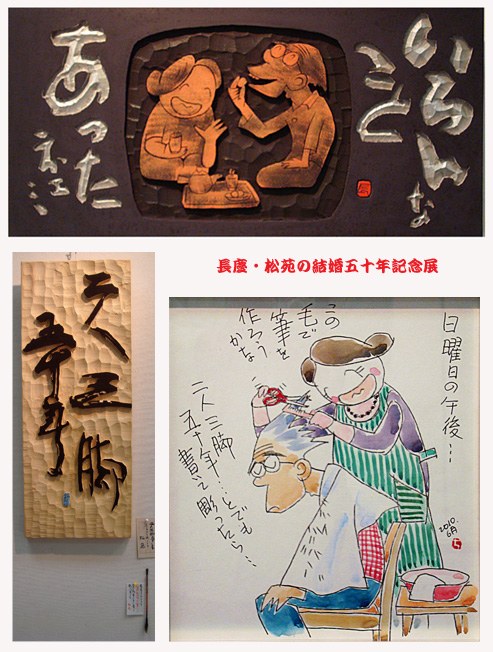 いろんな
こと
あった
長虚・松苑の結婚五十年記念展
二人三脚
五十年
日曜日の午後…
この
毛で
筆を
作ろう
かな
二人三脚
五十年…とでも
書いて彫ったら…
2010.
6月